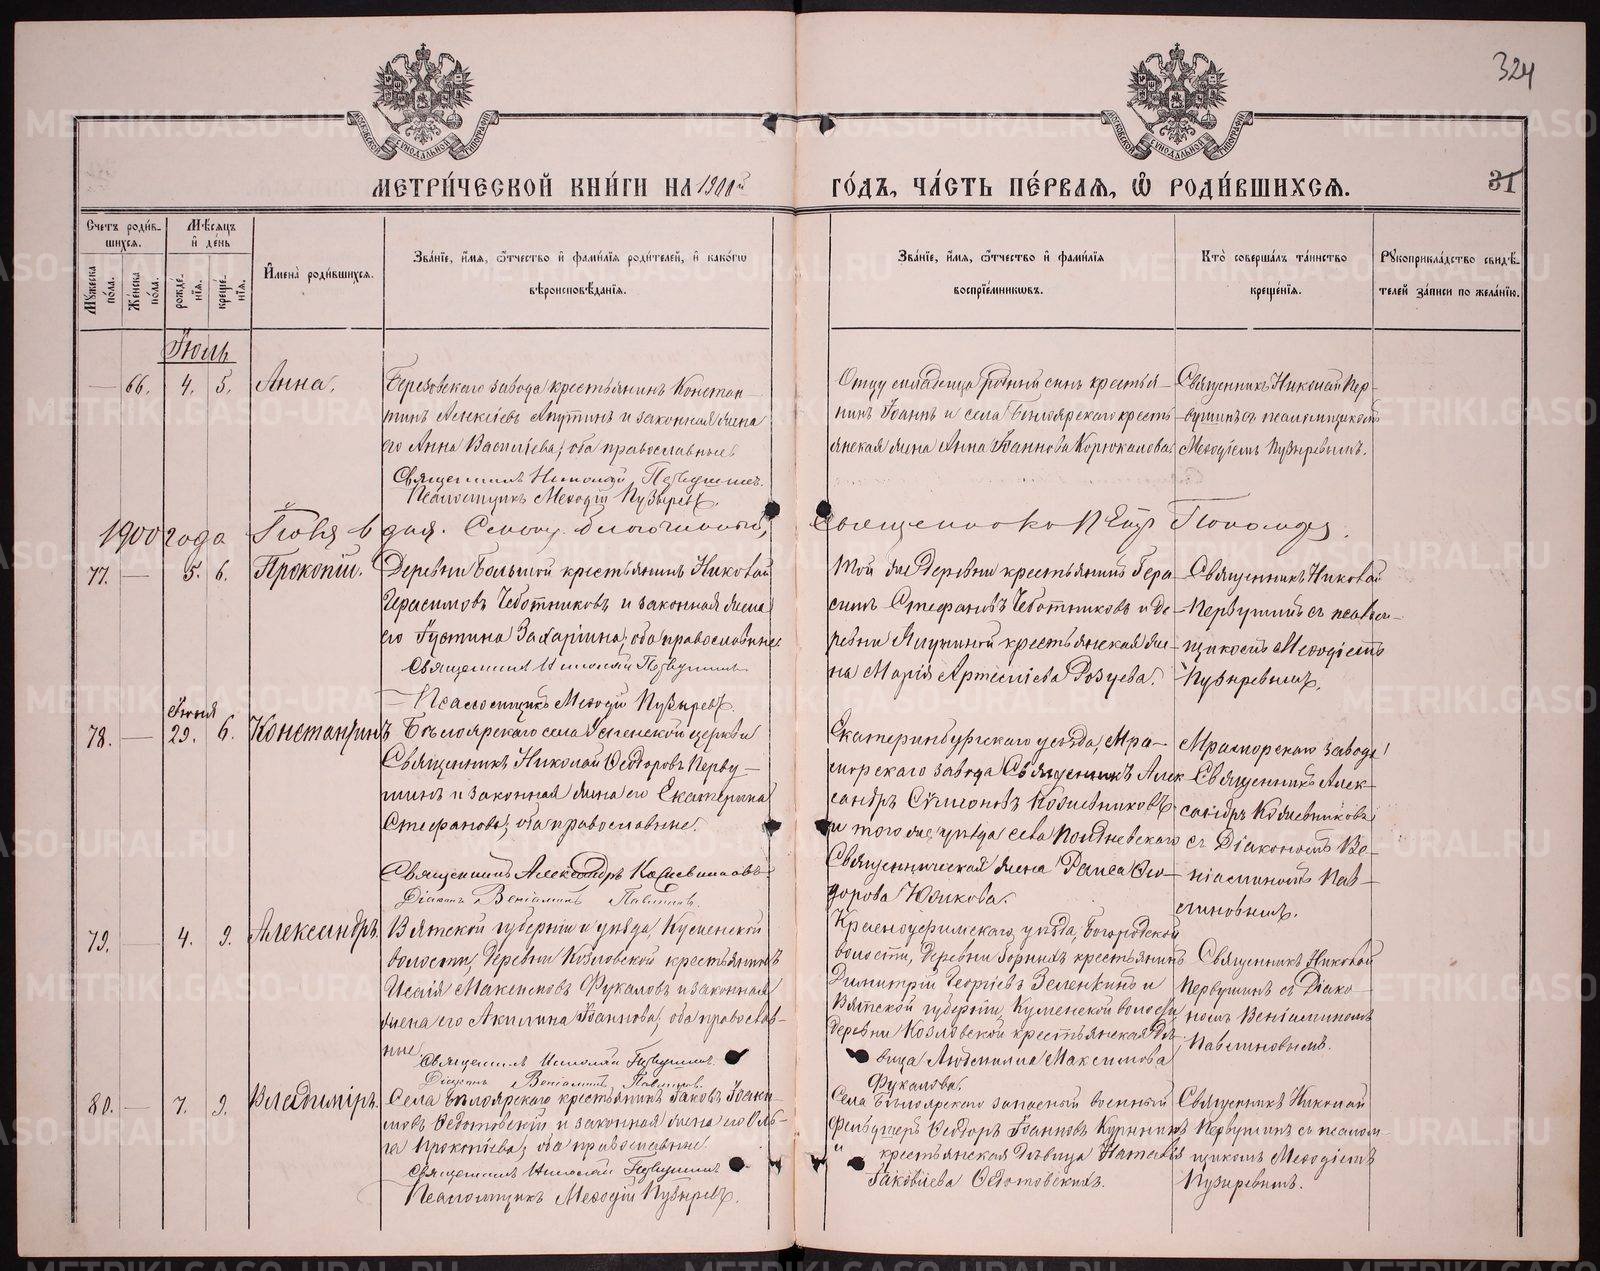 324
МОСКОВСКОЙ СѴНОДАЛЬНОЙ ТИПОГРАФІИ
МОСКОВСКОЙ СѴНОДАЛЬНОЙ ТИПОГРАФІИ
МЕТРИ́ЧЕСКОЙ КНИ́ГИ НА 1900й
ГО́ДЪ, ЧА́СТЬ ПЕ́РВАѦ, Ѽ РОДИ́ВШИХСѦ.
31
Счетъ роди́в-
шихсѧ.
Мꙋжеска по́ла.
Женска по́ла.
Мѣ́сѧцъ
и҆ де́нь
рожде́-
нїѧ.
креще́-
нїѧ.
И҆мена̀ роди́вшихсѧ.
Зва́нїе, и҆́мѧ, ѻ҆́тчество и҆ фами́лїѧ роди́телей, и҆ како́гѡ
вѣроисповѣ́данїѧ.
Зва́нїе, и҆́мѧ, ѻ҆́тчество и҆ фами́лїѧ
воспрїе́мникѡвъ.
Кто̀ соверша́лъ та́инство
креще́нїѧ.
Рꙋкоприкла́дство свидѣ́-
телей за́писи по жела́нїю.
Іюль
— 66. 4. 5. Анна.
Березовскаго завода крестьянинъ Констан-
тинъ Алексѣевъ и законная жена
его Анна Васильева, оба православные
Священникъ Николай Первушинъ.
Псаломщикъ Меѳодій Пузыревъ.
Отцу младенца родный сынъ крестья-
нинъ Іоаннъ и села Бѣлоярскаго кресть
янская жена Анна Іоаннова Корюкалова.
Священникъ Николай Пер-
вушинъ съ псаломщикомъ
Меѳодіемъ Пузыревымъ.
1900 года
77. — 5. 6. Прокопій.
Деревни Большой крестьянинъ Николай
Герасимовъ Чеботниковъ и законная жена
его Іустина Захаріина, оба православные.
Священникъ Николай Первушинъ
Псаломщикъ Меѳодій Пузыревъ.
Той же деревни крестьянинъ Гера
симъ Стефановъ Чеботниковъ и де-
ревни крестьянская же-
на Марія Артеміева
Священникъ Николай
Первушинъ съ псалом-
щикомъ Меѳодіемъ
Пузыревымъ.
Іюня
78. — 29. 6. Константинъ
Бѣлоярскаго села церкви
Священникъ Николай Ѳеодоровъ Перву-
шинъ и законная жена его Екатерина
Стефанова, оба православные.
Священникъ Александръ Кожевниковъ
Діаконъ Веніаминъ Павлиновъ.
Екатеринбургскаго уѣзда, Мра-
морскаго завода Священникъ Алек
сандръ Сѵмеоновъ Кожевниковъ
и того же уѣзда села
Священническая жена Раиса Ѳео-
дорова
Мраморскаго завода
Священникъ Алек-
сандръ Кожевниковъ
съ Діакономъ Ве-
ніаминомъ Пав-
линовымъ.
79. — 4. 9. Александръ.
Вятской губерніи и уѣзда, Куменской
волости, деревни Козловской крестьянинъ
Исаія Максимовъ Фукаловъ и законная
жена его Акилина Іоаннова, оба православ-
ные
Священникъ Николай Первушинъ.
Діаконъ Веніаминъ Павлиновъ.
Красноуфимскаго уѣзда, Богородской
волости, деревни крестьянинъ
Димитрій Георгіевъ Зеленкинъ и
Вятской губерніи, Куменской волости
деревни Козловской крестьянская дѣ-
вица Людмила Максимова
Фукалова.
Священникъ Николай
Первушинъ съ Діако-
номъ Веніаминомъ
Павлиновымъ.
80. — 7. 9. Владиміръ.
Села Бѣлоярскаго крестьянинъ Іаковъ Іоаки-
мовъ Ѳедотовскій и законная жена его Оль-
га Прокопіева, оба православные.
Священникъ Николай Первушинъ
Псаломщикъ Меѳодій Пузыревъ.
Села Бѣлоярскаго запасный военный
фельдшеръ Ѳеодоръ Іоанновъ
крестьянская дѣвица Наталія
Іаковлева Ѳедотовскихъ.
Священникъ Николай
Первушинъ съ псалом-
щикомъ Меѳодіемъ
Пузыревымъ.
METRIKI.GASO-URAL.RU